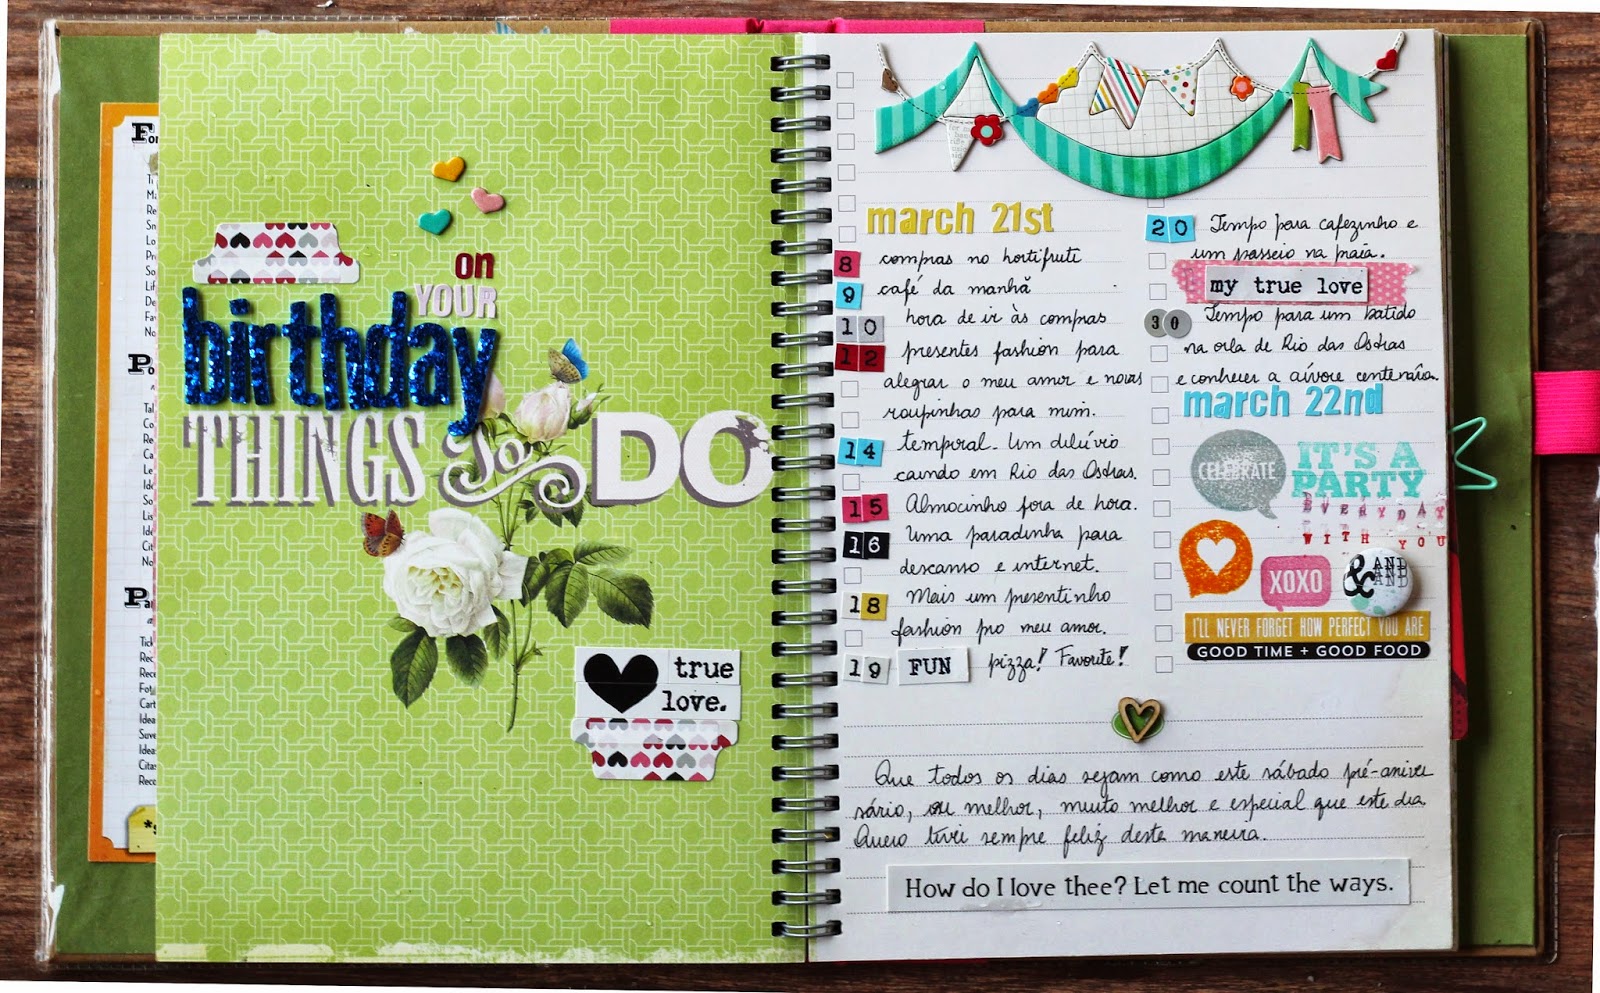 on
YOUR
birthday
THINGS to DO
true
love.
march 21st
8 compras no hortifruti
9 café da manhã
10 hora de ir às compras
12 presentes fashion para
alegrar o meu amor e novas
roupinhas para mim.
14 temporal. Um dilúvio
caindo em Rio das Ostras.
15 Almocinho fora de hora.
16 Uma paradinha para
descanso e internet.
18 Mais um presentinho
fashion pro meu amor.
19 FUN pizza! Favorite!
20 Tempo para cafezinho e
um passeio na praia.
my true love
30 Tempo para um batido
na orla de Rio das Ostras
e conhecer a árvore centenária.
march 22nd
CELEBRATE
IT'S A
PARTY
EVERYDAY
WITH YOU
XOXO
& AND
AND
I'LL NEVER FORGET HOW PERFECT YOU ARE
GOOD TIME + GOOD FOOD
Que todos os dias sejam como este sábado pré-aniver
sário, ou melhor, muito melhor e especial que este dia.
Quero viver sempre feliz desta maneira.
How do I love thee? Let me count the ways.